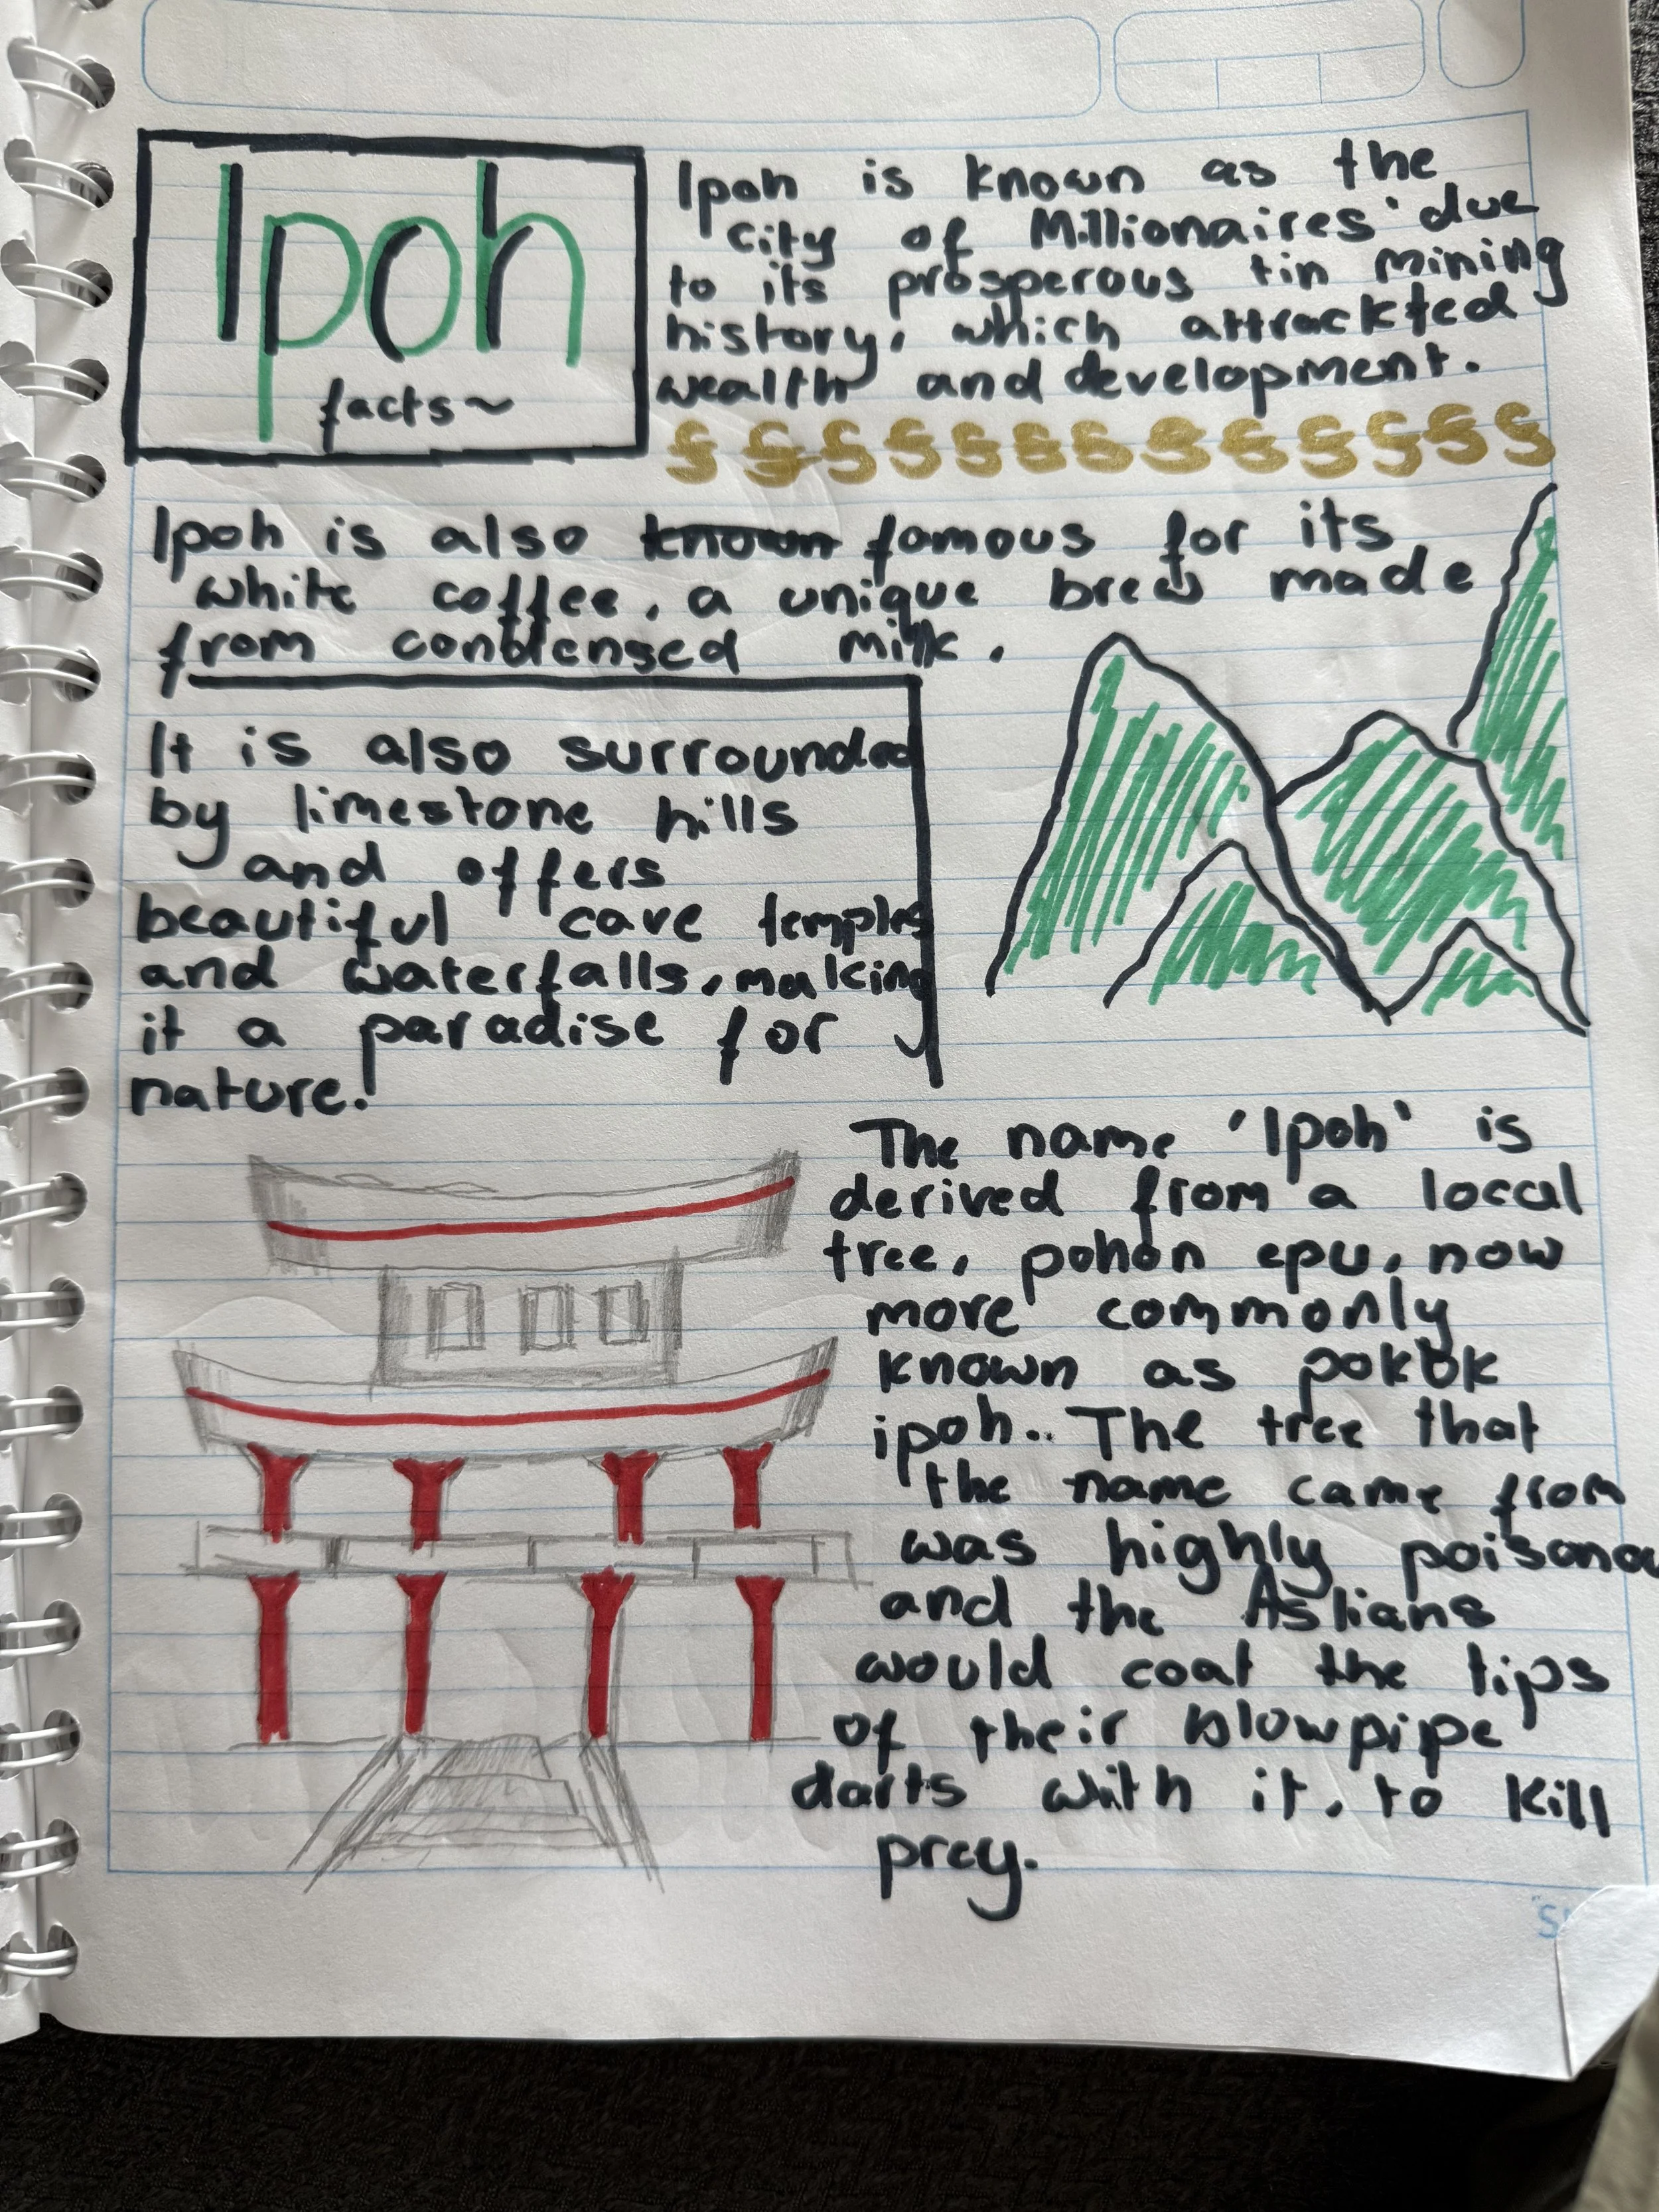 Ipoh
facts~
Ipoh is known as the
'city of Millionaires' due
to its prosperous tin mining
history, which attrackted
wealth and development.
Ipoh is also known famous for its
white coffee, a unique brew made
from condensed milk.
It is also surrounded
by limestone hills
and offers
beautiful cave temples
and waterfalls, making
it a paradise for
nature!
The name 'Ipoh' is
derived from a local
tree, pohon epu, now
more commonly
known as pokok
ipoh.. The tree that
the name came from
was highly poisonou
and the Aslians
would coat the tips
of their blowpipe
darts with it, to kill
prey.